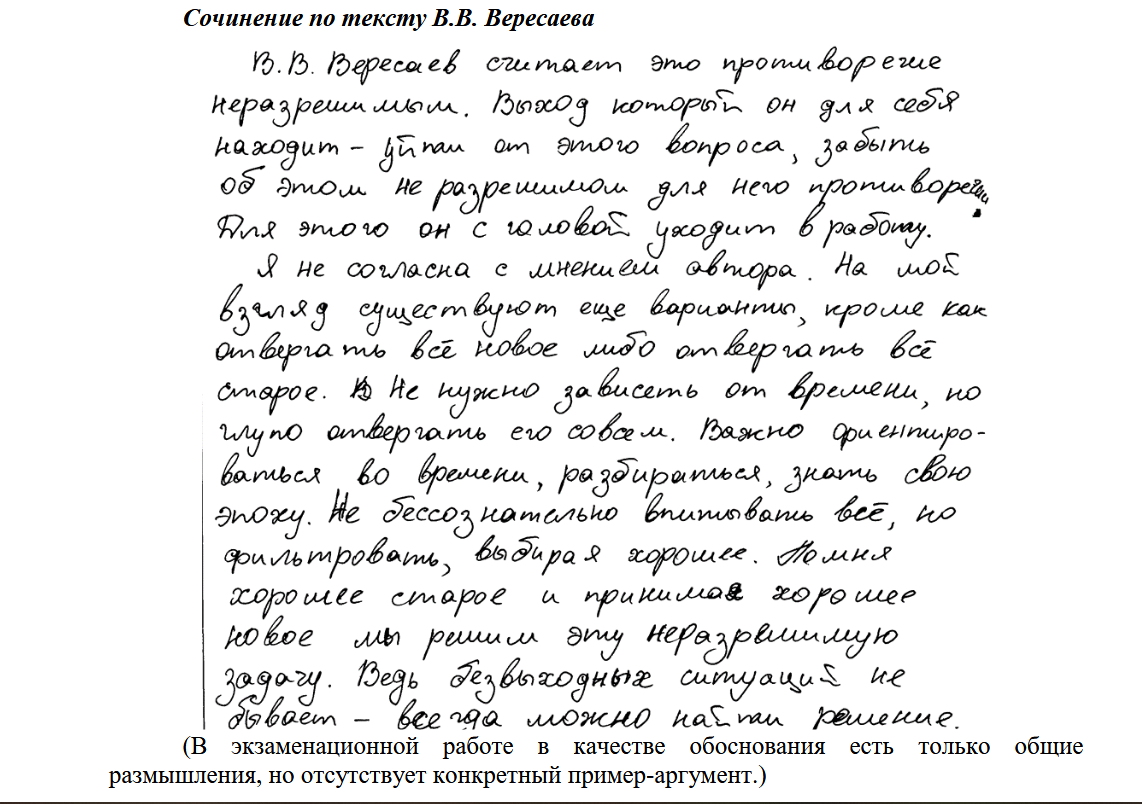 Сочинение по тексту В.В. Вересаева
В.В. Вересаев считает это противоречие
неразрешимым. Выход который он для себя
находит – уйти от этого вопроса, забыть
об этом не разрешимом для него противоречии.
Для этого он с головой уходит в работу.
Я не согласна с мнением автора. На мой
взгляд существуют еще варианты, кроме как
отвергать всё новое либо отвергать всё
старое. Не нужно зависеть от времени, но
глупо отвергать его совсем. Важно ориентиро-
ваться во времени, разбираться, знать свою
эпоху. Не бессознательно впитывать всё, но
фильтровать, выбирая хорошее. Помня
хорошее старое и принимая хорошее
новое мы решим эту неразрешимую
задачу. Ведь безвыходных ситуаций не
бывает – всегда можно найти решение.
(В экзаменационной работе в качестве обоснования есть только общие
размышления, но отсутствует конкретный пример-аргумент.)